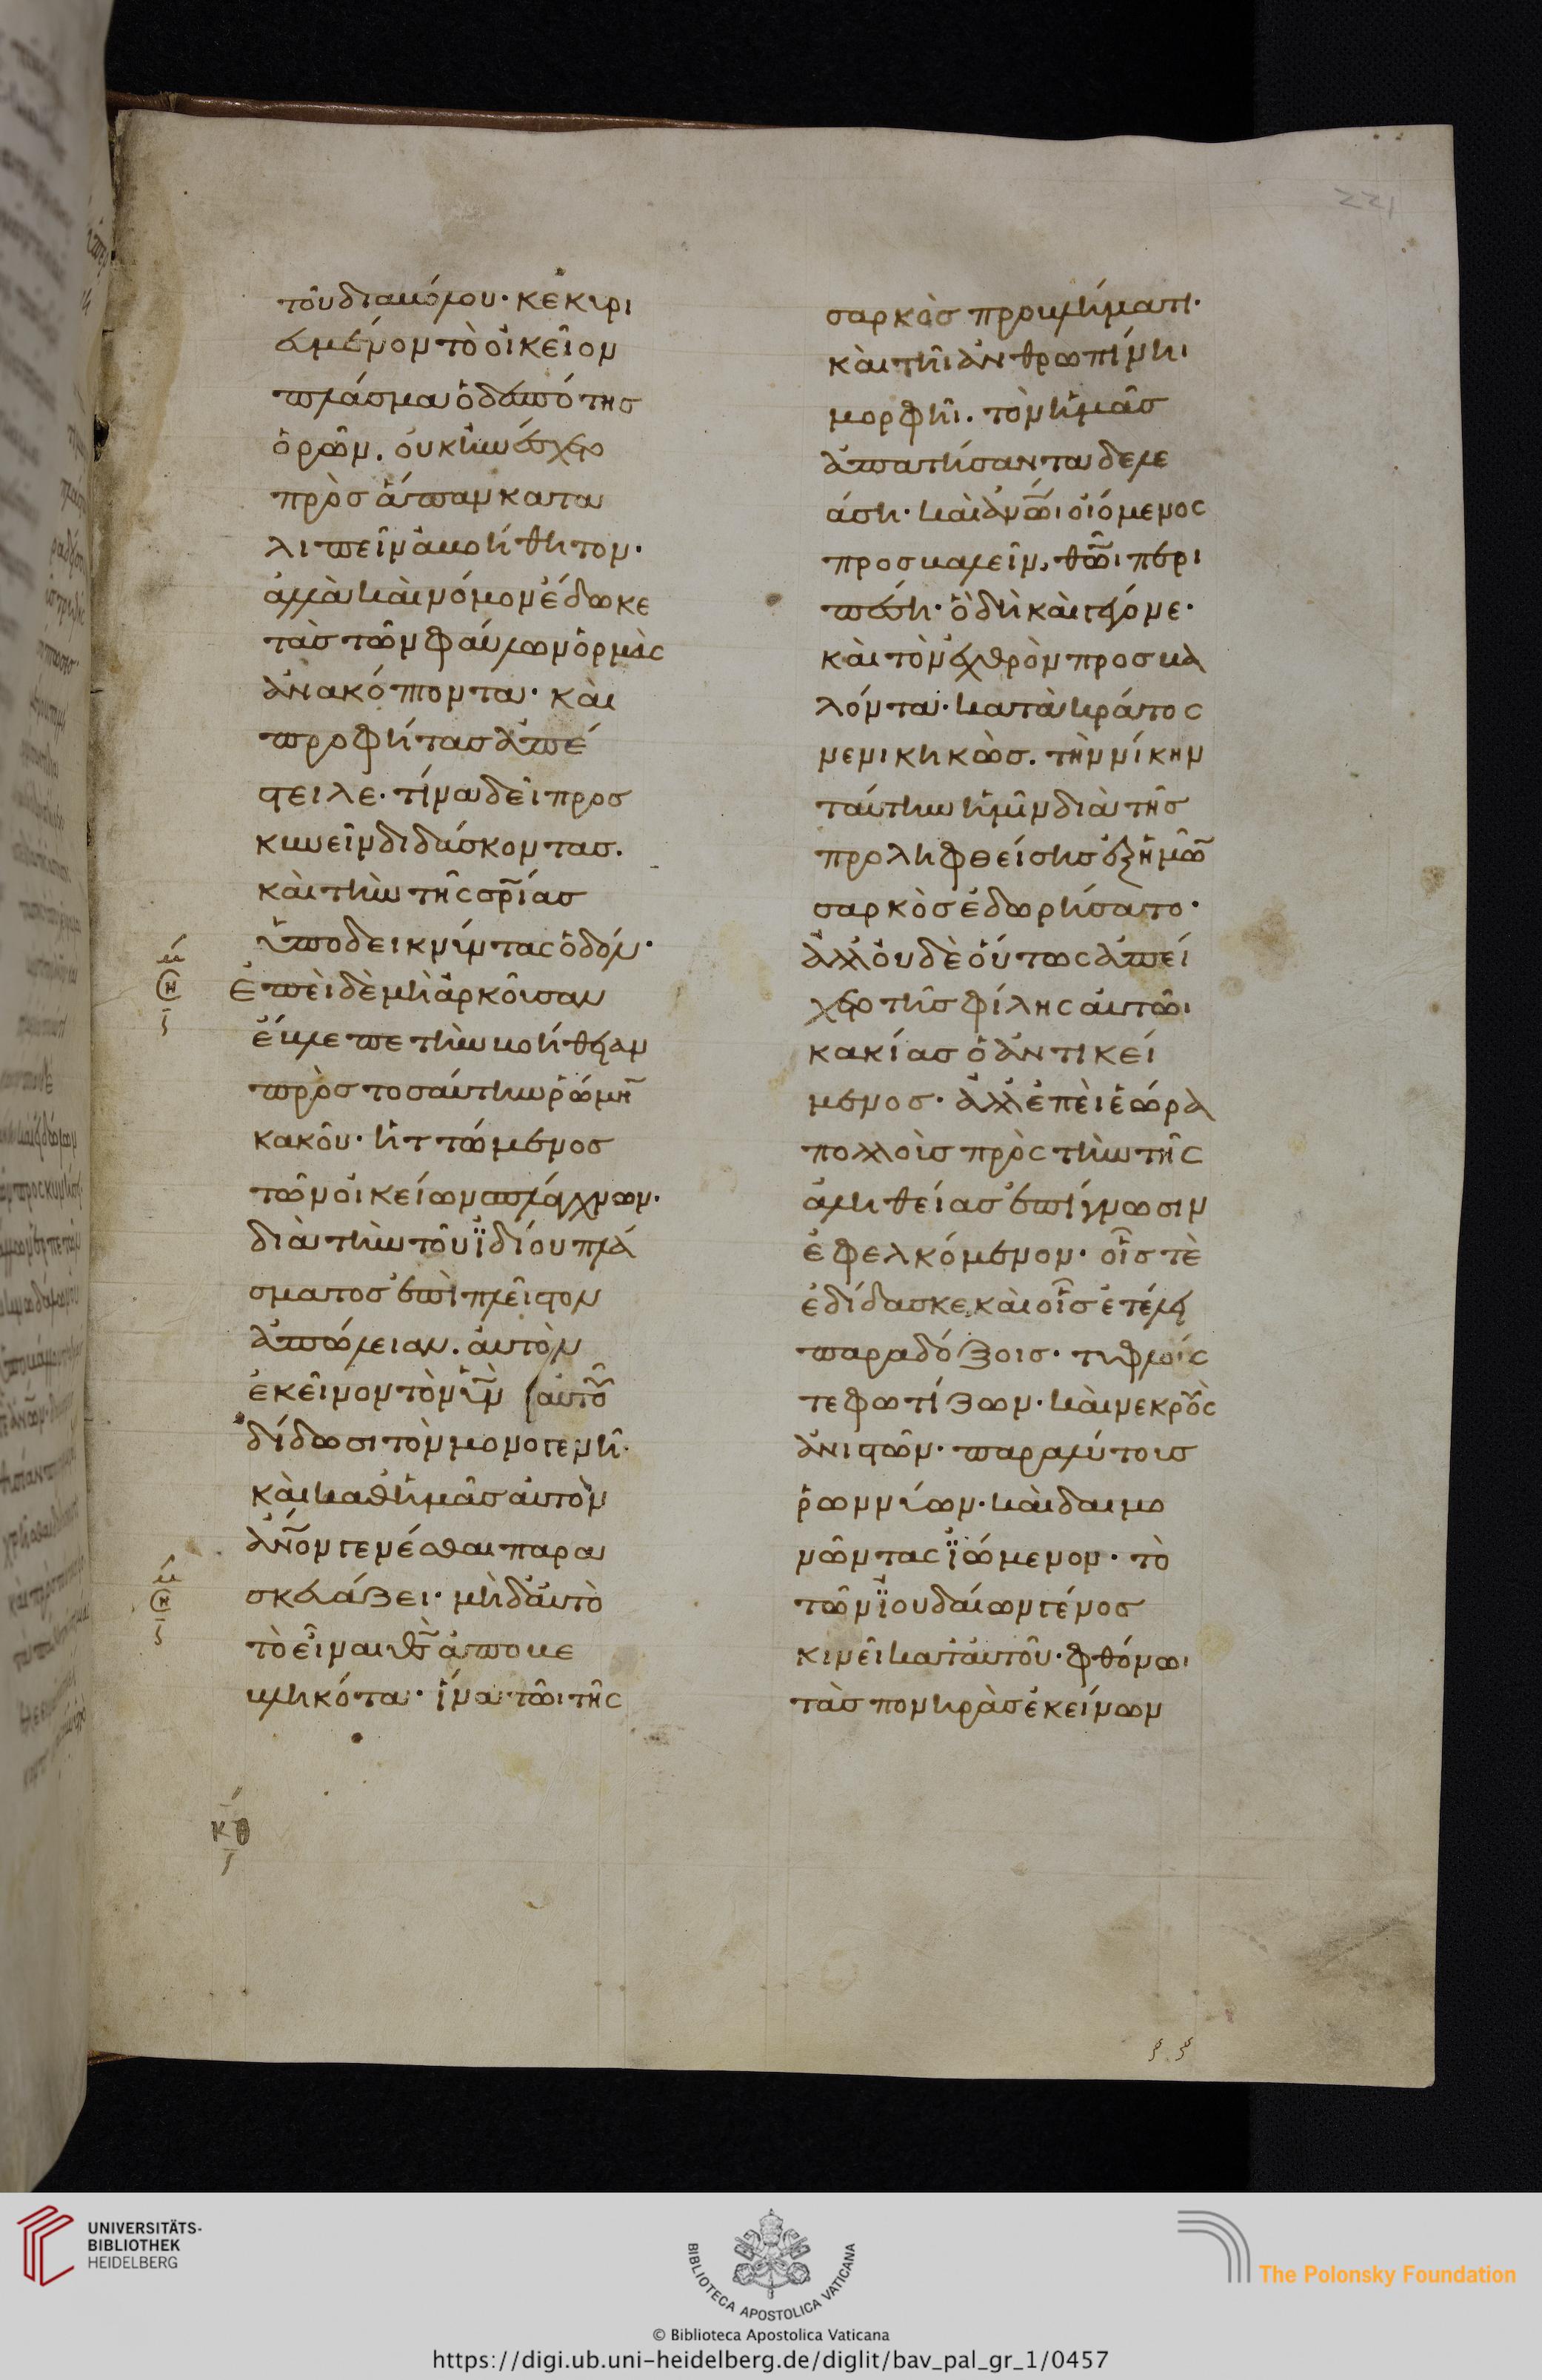 221
τοῦ διαβόλου· κεκυρι
ευμένον τὸ οἰκεῖον
πλάσμα ὁ δεσπότης
ὁρῶν. οὐκ ἠνέσχετο
πρὸς ἅπαν κατα
λιπεῖν ἀβοήθητον·
ἀλλὰ καὶ νόμον ἔδωκε
τὰς τῶν φαύλων ὁρμὰς
ἀνακόπτοντα· καὶ
προφήτας ἀπέ
στειλε· τίνα δεῖ προσ
κυνεῖν διδάσκοντας.
καὶ τὴν τῆς σρίας
ὑποδεικνύντας ὁδόν·
Ἐπεὶ δὲ μὴ ἀρκοῦσαν
ἔβλεπε τὴν βοήθειαν
πρὸς τοσαύτην ῥώμην
κακοῦ· ἡττώμενος
τῶν οἰκείων σπλάγχνων·
διὰ τὴν τοῦ ἰδίου πλά
σματος ἐπὶ πλεῖστον
ἀπώλειαν. αὐτὸν
ἐκεῖνον τὸν υν αὐτοῦ
δίδωσι τὸν μονογενῆ·
καὶ καθ ἡμᾶς αὐτὸν
ανον γενέσθαι παρα
σκευάζει· μὴ δ αὐτὸ
τὸ εἶναι θς ἀποβε
βληκότα· ἵνα τῶι τῆς
κθ
σαρκὸς προβλήματι·
καὶ τῆι ἀνθρωπίνηι
μορφῆι. τὸν ἡμᾶς
ἀπατήσαντα δελε
άση· καὶ ανωι οἰόμενος
προσβαλεῖν, θωι περι
πέση· ὃ δὴ καὶ γέγονε·
καὶ τὸν ἐχθρὸν προσβα
λόντα· κατὰ κράτος
νενικηκὼς. τὴν νίκην
ταύτην ἡμῖν διὰ τῆς
προληφθείσης ἐξ ἡμῶν
σαρκὸς ἐδωρήσατο·
ἀλλ οὐδὲ οὕτως ἀπεί
χετο τῆς φίλης αὐτῶι
κακίας ὁ ἀντικεί
μενος· ἀλλ ἐπεὶ ἑώρα
πολλοὺς πρὸς τὴν τῆς
ἀληθείας ἐπίγνωσιν
ἐφελκόμενον· οἷς τὲ
ἐδίδασκε, καὶ οἷς ἐτέλει
παραδόξοις· τυφλούς
τε φωτίζων· καὶ νεκροὺς
ἀνιστῶν· παραλύτους
ῥωννύων· καὶ δαιμο
νῶντας ἰώμενον· τὸ
τῶν ἰουδαίων γένος
κινεῖ κατ αὐτοῦ· φθόνωι
τὰς πονηρὰς ἐκείνων
UNIVERSITÄTS-
BIBLIOTHEK
HEIDELBERG
BIBLIOTECA APOSTOLICA VATICANA
© Biblioteca Apostolica Vaticana
The Polonsky Foundation
https://digi.ub.uni-heidelberg.de/diglit/bav_pal_gr_1/0457